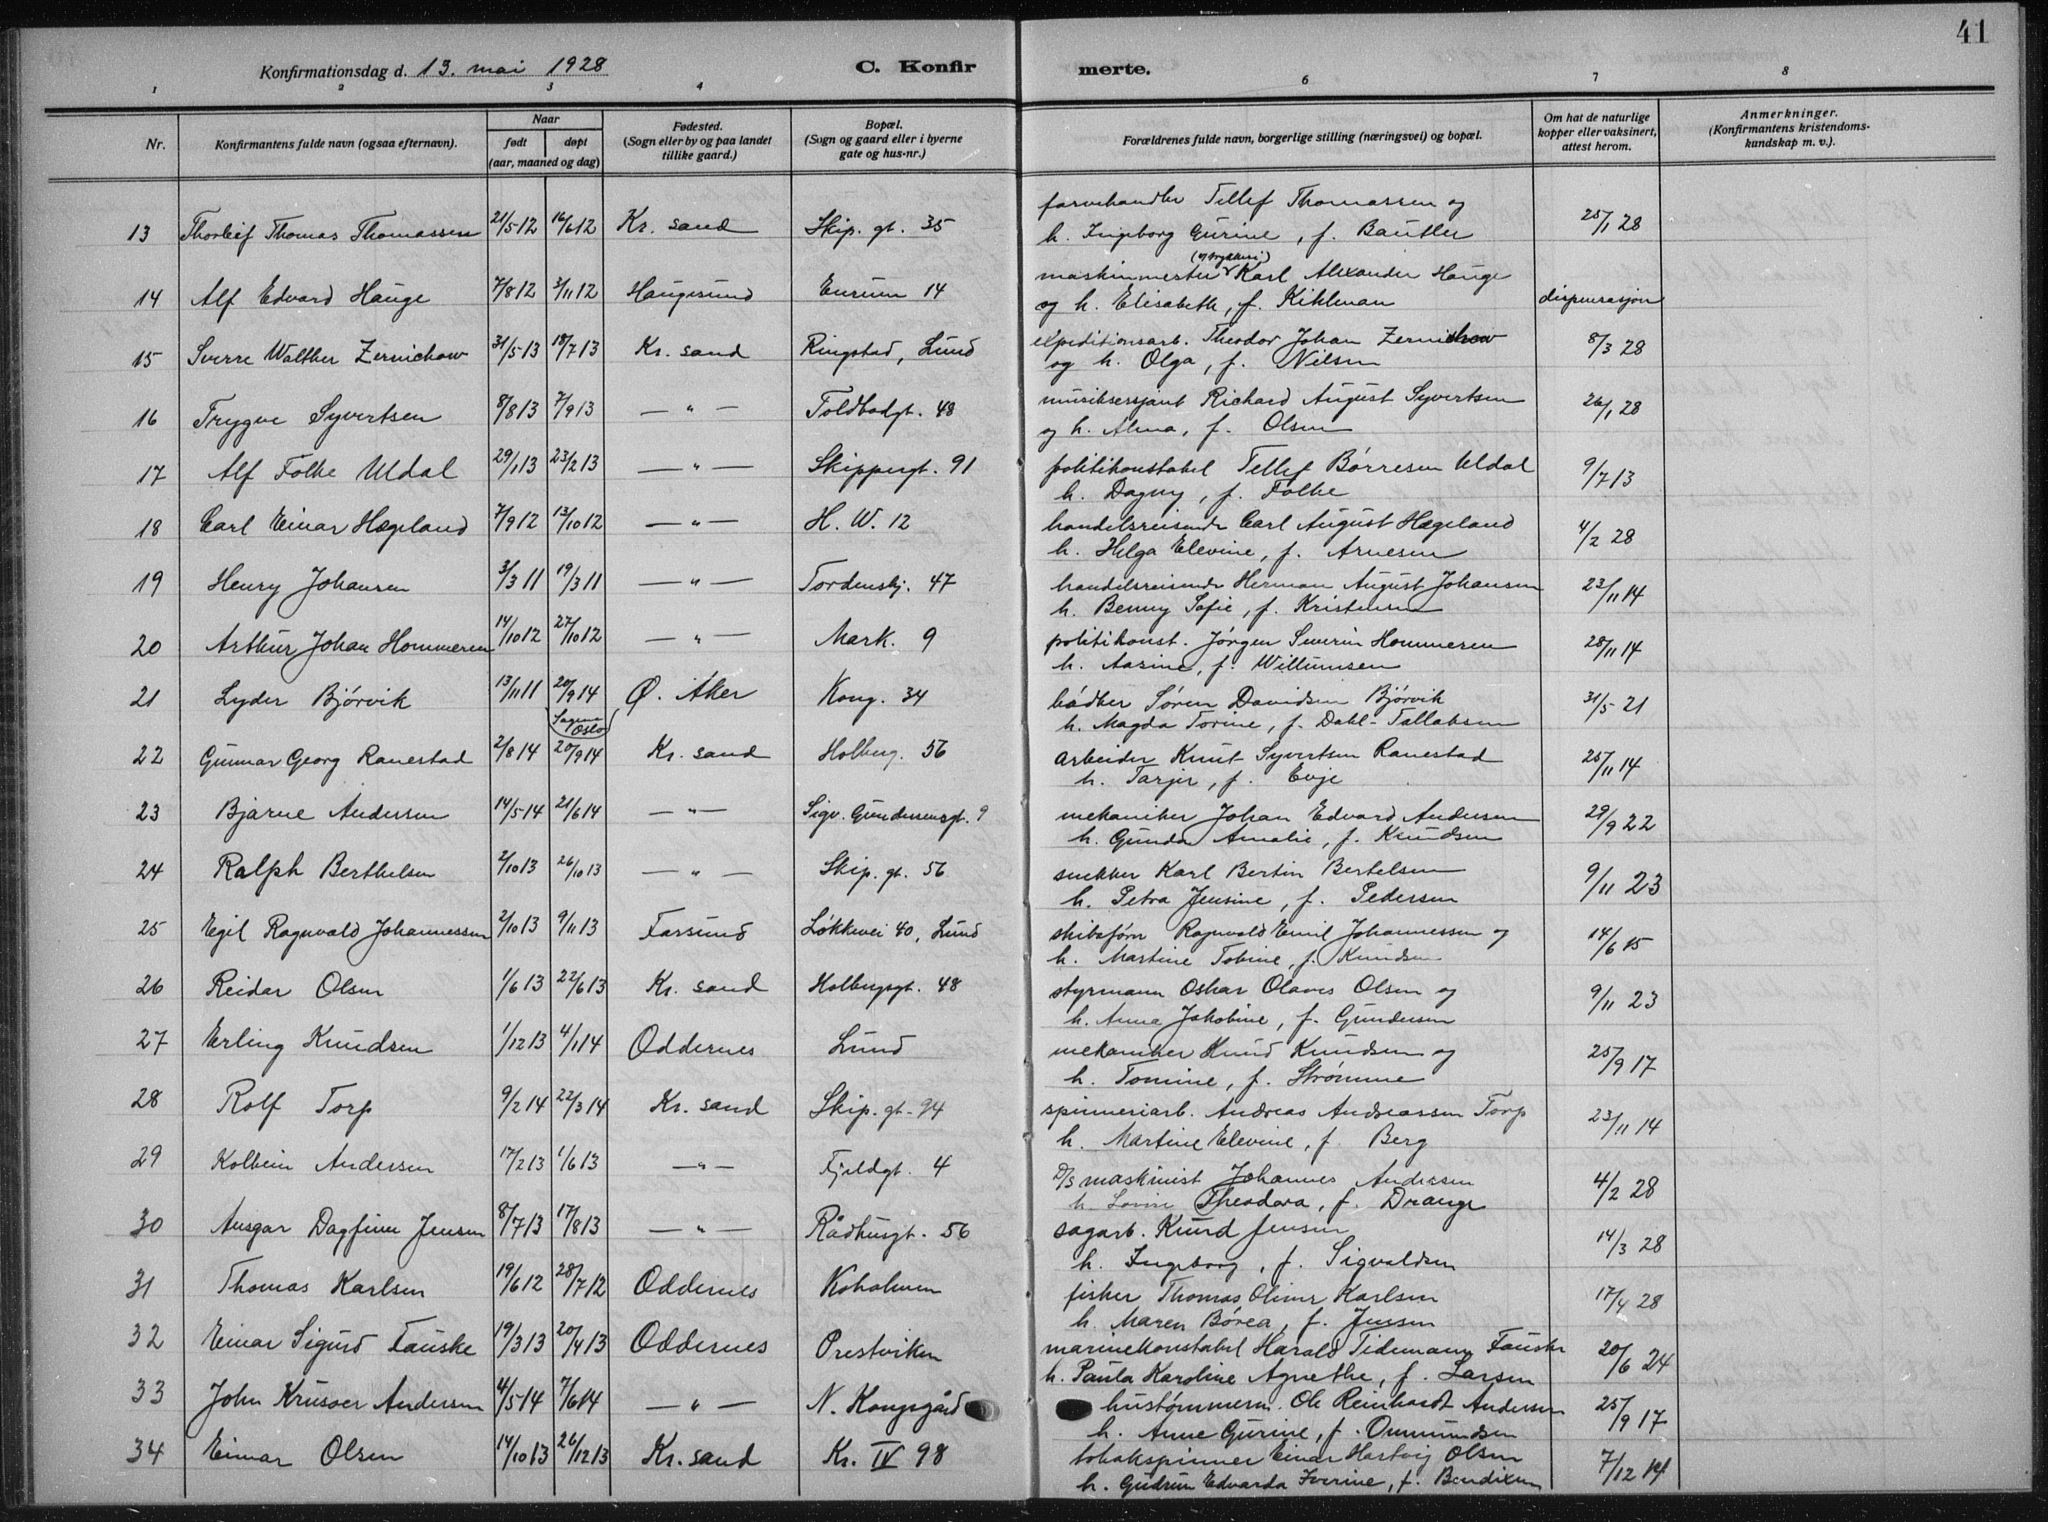 41
Konfirmationsdag d. 13. mai 1928 C. Konfirmerte.
1 2 3 4 5 6 7 8
Nr. Konfirmantens fulde navn (ogsaa efternavn). Naar født døpt (aar, maaned og dag) Fødested. (Sogn eller by og paa landet tillike gaard.) Bopæl. (Sogn og gaard eller i byerne gate og hus-nr.) Forældrenes fulde navn, borgerlige stilling (næringsvei) og bopæl. Om hat de naturlige kopper eller vaksinert, attest herom. Anmerkninger. (Konfirmantens kristendomskundskap m. v.).
13 Thorleif Thomas Thomassen 21/5 12 16/6 12 Kr. sand Skip. gt. 35 farvehandler Tellef Thomassen og 25/1 28
h. Ingeborg Gurine, f. Bautler
14 Alf Edvard Hauge 7/8 12 3/11 12 Haugesund Eurum 14 maskinmester (v/ trykkeri) Karl Alexander Hauge dispensasjon
og h. Elisabeth, f. Kihlman
15 Sverre Walther Zernichow 31/5 13 18/7 13 Kr. sand Ringstad, Lund expeditionsarb. Theodor Johan Zernichow 8/3 28
og h. Olga, f. Nilsen
16 Trygve Syvertsen 8/8 13 7/9 13 — " — Toldbodgt. 48 musiksersjant Richard August Syvertsen 26/1 28
og h. Alma, f. Olsen
17 Alf Folke Udal 29/1 13 23/2 13 — " — Skippergt. 91 politikonstabel Tellef Børresen Udal 9/7 13
h. Dagny, f. Folke
18 Carl Einar Hægeland 7/9 12 13/10 12 — " — H. W. 12 handelsreisende Carl August Hægeland 4/2 28
h. Helga Elevine, f. Arnesen
19 Henry Johansen 3/3 11 19/3 11 — " — Tordenskj. 47 handelsreisende Herman August Johansen 23/11 14
h. Benny Sofie, f. Kristensen
20 Arthur Johan Hommeren 14/10 12 27/10 12 — " — Mark. 9 politikonst. Jørgen Severin Hommeren 28/11 14
h. Aasine, f. Willumsen
21 Lyder Bjørvik 13/11 11 20/9 14 Ø. Aker Kong. 34 bødker Søren Davidsen Bjørvik 31/5 21
(Sagene Oslo) h. Magda Torine, f. Dahl-Tallaksen
22 Gunnar Georg Ranestad 2/8 14 20/9 14 Kr. sand Holberg. 56 arbeider Knut Syvertsen Ranestad 25/11 14
h. Tarjer, f. Evje
23 Bjarne Andersen 14/5 14 21/6 14 — " — Sigv. Gundersensgt. 9 mekaniker Johan Edvard Andersen 29/9 22
h. Gunda Amalie, f. Knudsen
24 Ralph Berthelsen 2/10 13 26/10 13 — " — Skip. gt. 56 snekker Karl Bertin Bertelsen 9/11 23
h. Petra Jensine, f. Pedersen
25 Egil Ragnvald Johannessen 2/10 13 9/11 13 Farsund Løkkevei 40, Lund skibsførr Ragnvald Emil Johannessen og 14/6 15
h. Martine Tobine, f. Knudsen
26 Reidar Olsen 1/6 13 22/6 13 Kr. sand Holbergsgt. 48 styrmann Oskar Olaves Olsen og 9/11 23
h. Anna Jakobine, f. Gundersen
27 Erling Knudsen 1/12 13 4/1 14 Oddernes Lund mekaniker Knud Knudsen og 25/9 17
h. Tomine, f. Strømme
28 Rolf Torp 9/2 14 22/3 14 Kr. sand Skip. gt. 94 spinneriarb. Andreas Andreassen Torp 23/11 14
h. Martine Elevine, f. Berg
29 Kolbein Andersen 17/2 13 1/6 13 — " — Fjeldgt. 4 D/S maskinist Johannes Andersen 4/2 28
h. Lovise Theodora, f. Drange
30 Ansgar Dagfinn Jensen 8/7 13 17/8 13 — " — Rådhusgt. 56 sagarb. Knud Jensen 14/3 28
h. Ingeborg, f. Sigvaldsen
31 Thomas Karlsen 19/6 12 28/7 12 Oddernes Koholmen fisker Thomas Oliver Karlsen 17/4 28
h. Maren Børea, f. Jensen
32 Einar Sigurd Fauske 19/3 13 20/4 13 Oddernes Prestviken marinekonstabel Harald Tidemann Fauske 20/6 24
h. Paula Karoline Agnethe, f. Larsen
33 John Krusoer Andersen 4/5 14 7/6 14 — " — N. Kongsgård hustømmerm. Ole Reinhardt Andersen 25/9 17
h. Anne Gurine, f. Ommundsen
34 Einar Olsen 14/10 13 26/12 13 Kr. sand Kr. IV 98 tobakspinner Einar Hartvig Olsen 7/12 14
h. Gudrun Edvarda Iverine, f. Bendixen